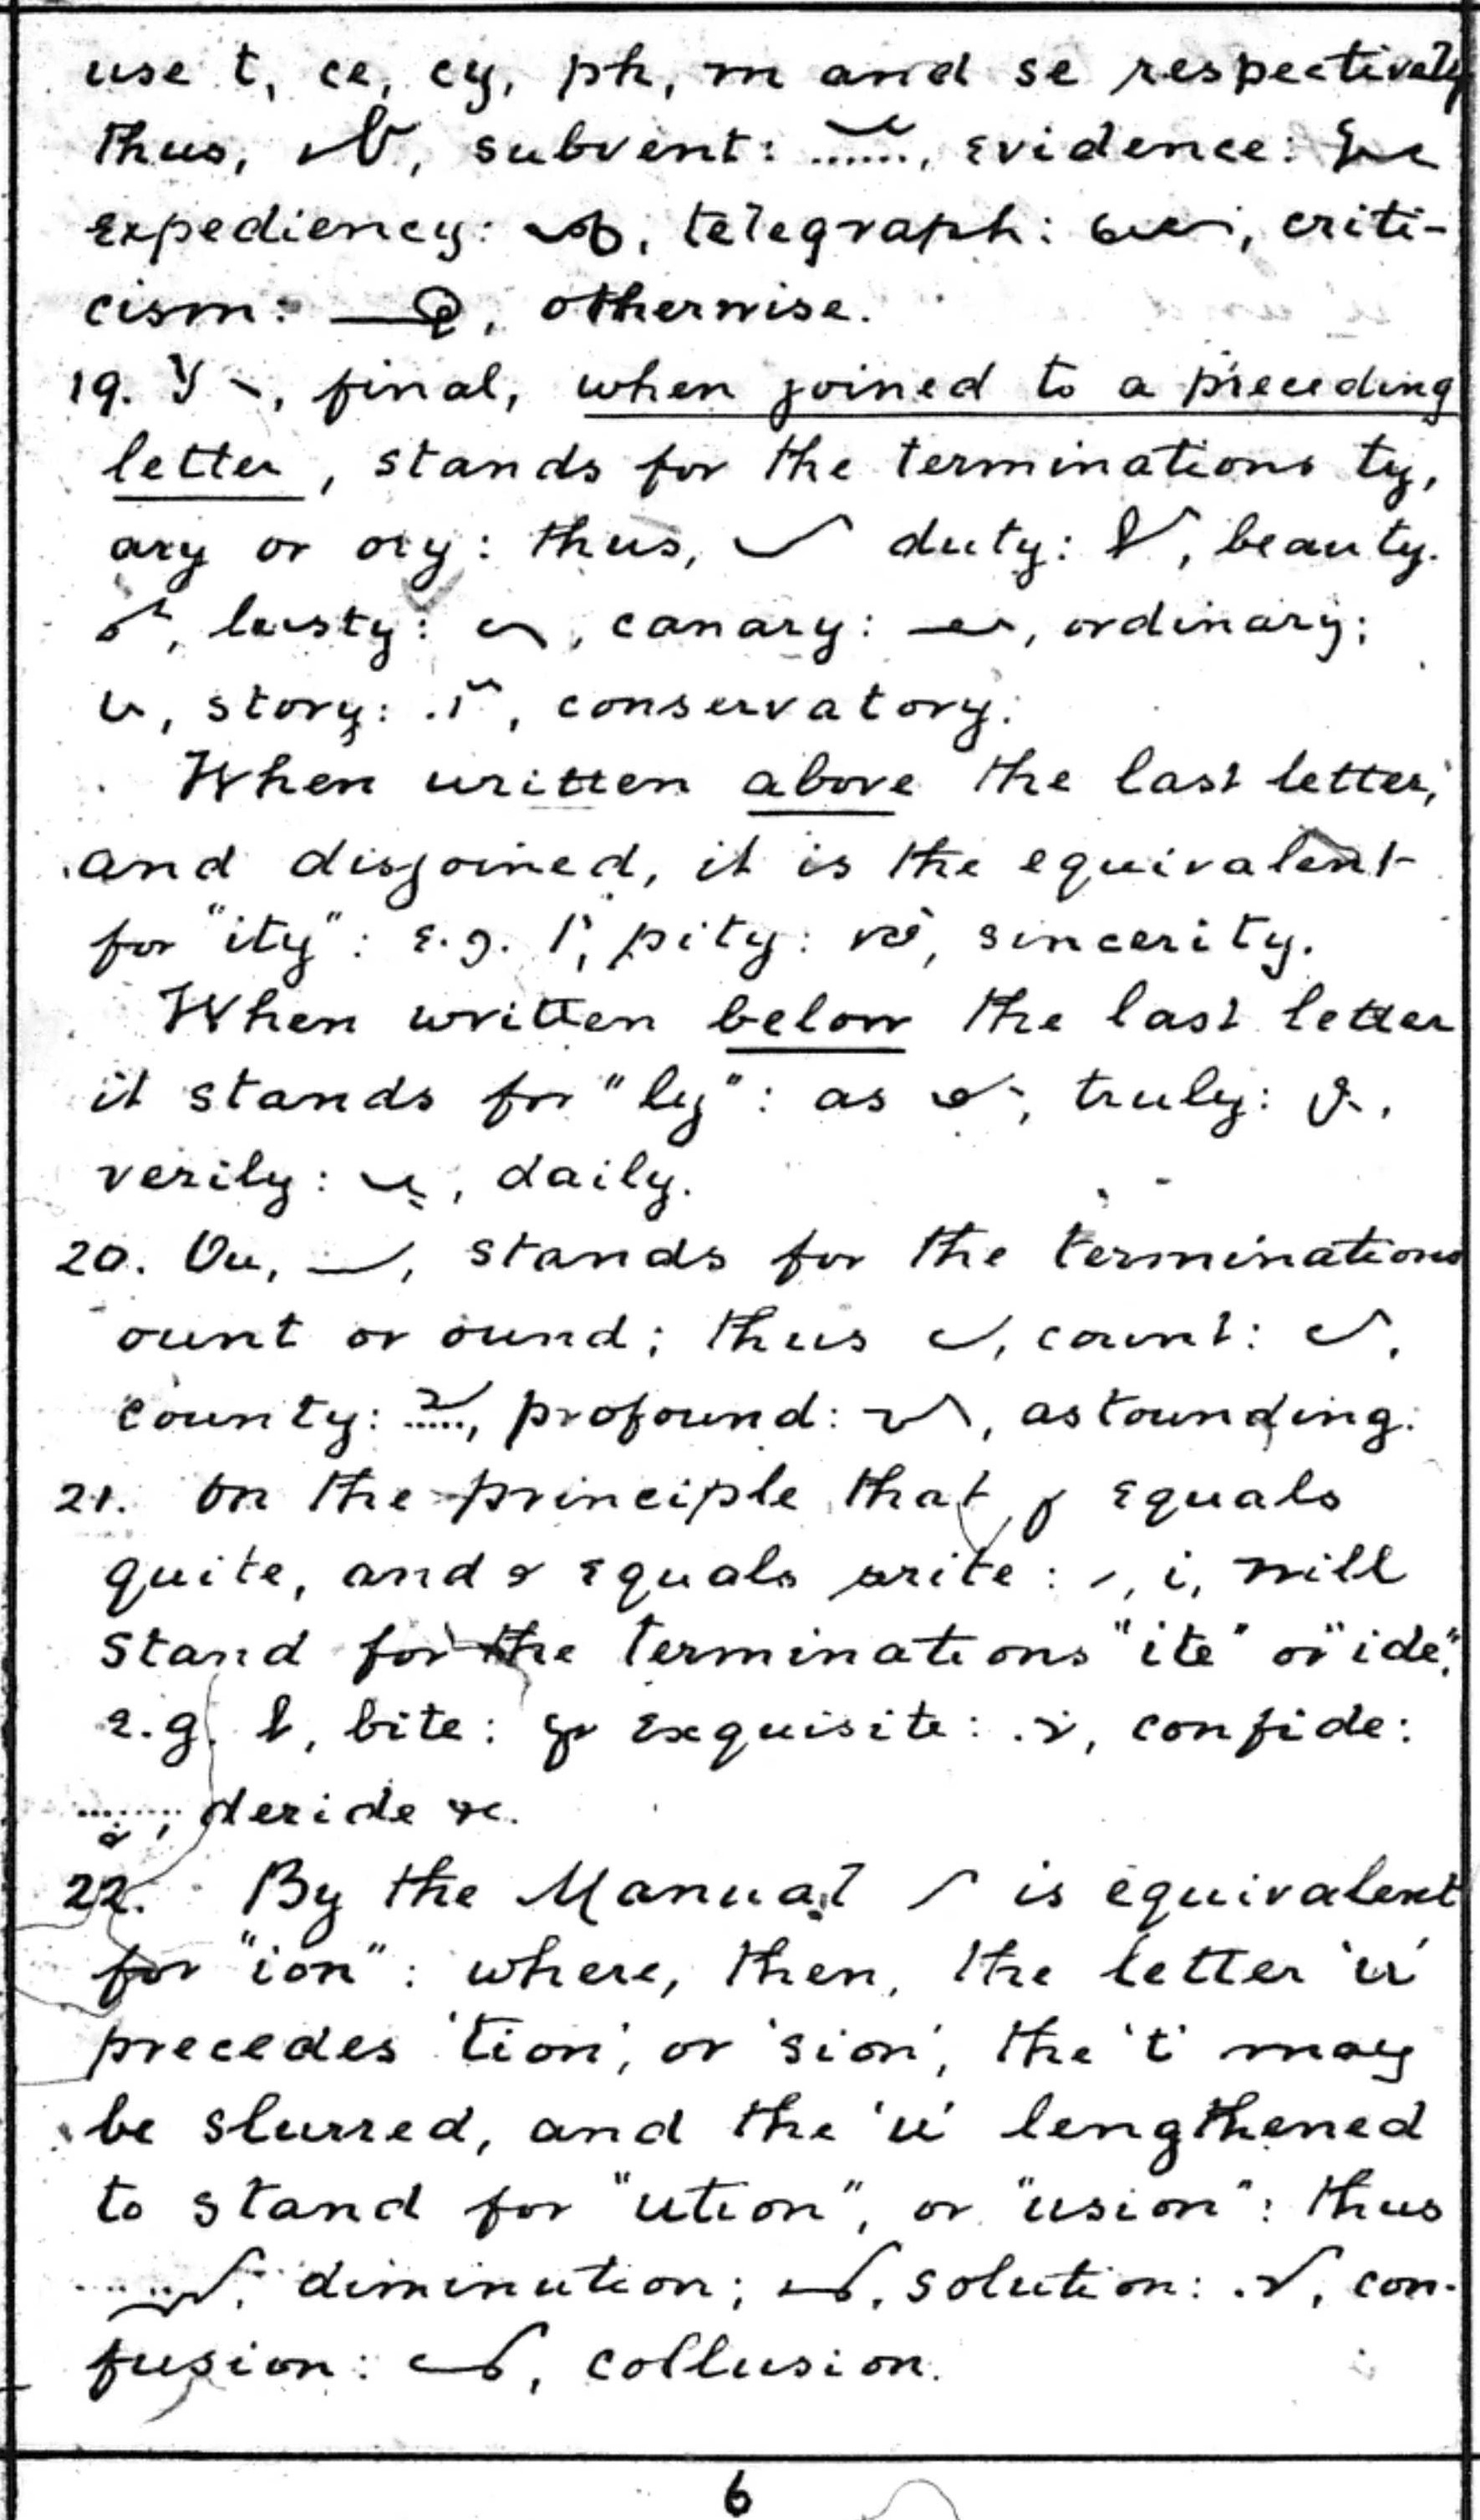 use t, ce, cy, ph, m and se respectively
thus, , subvent: ......, evidence:
expediency: , telegraph: , criti-
cism: , otherwise.
19. Y , final, when joined to a preceding
letter, stands for the terminations ty,
ary or ory: thus, duty: , beauty.
, lusty: , canary: , ordinary:
, story: , conservatory.
When written above the last letter,
and disjoined, it is the equivalent
for "ity": e.g. , pity: , sincerity.
When written below the last letter
it stands for "ly": as , truly: ,
verily: , daily.
20. Ou, , stands for the terminations
ount or ound; thus , count: ,
county: ....., profound: , astounding.
21. On the principle that equals
quite, and equals write: , i, will
stand for the terminations "ite" or "ide",
e.g. , bite: exquisite: , confide:
........, deride &c.
22. By the Manual is equivalent
for "ion": where, then, the letter 'u'
precedes 'tion', or 'sion', the 't' may
be slurred, and the 'u' lengthened
to stand for "ution", or "usion": thus
......, diminution; , solution: , con-
fusion: , collusion.
6